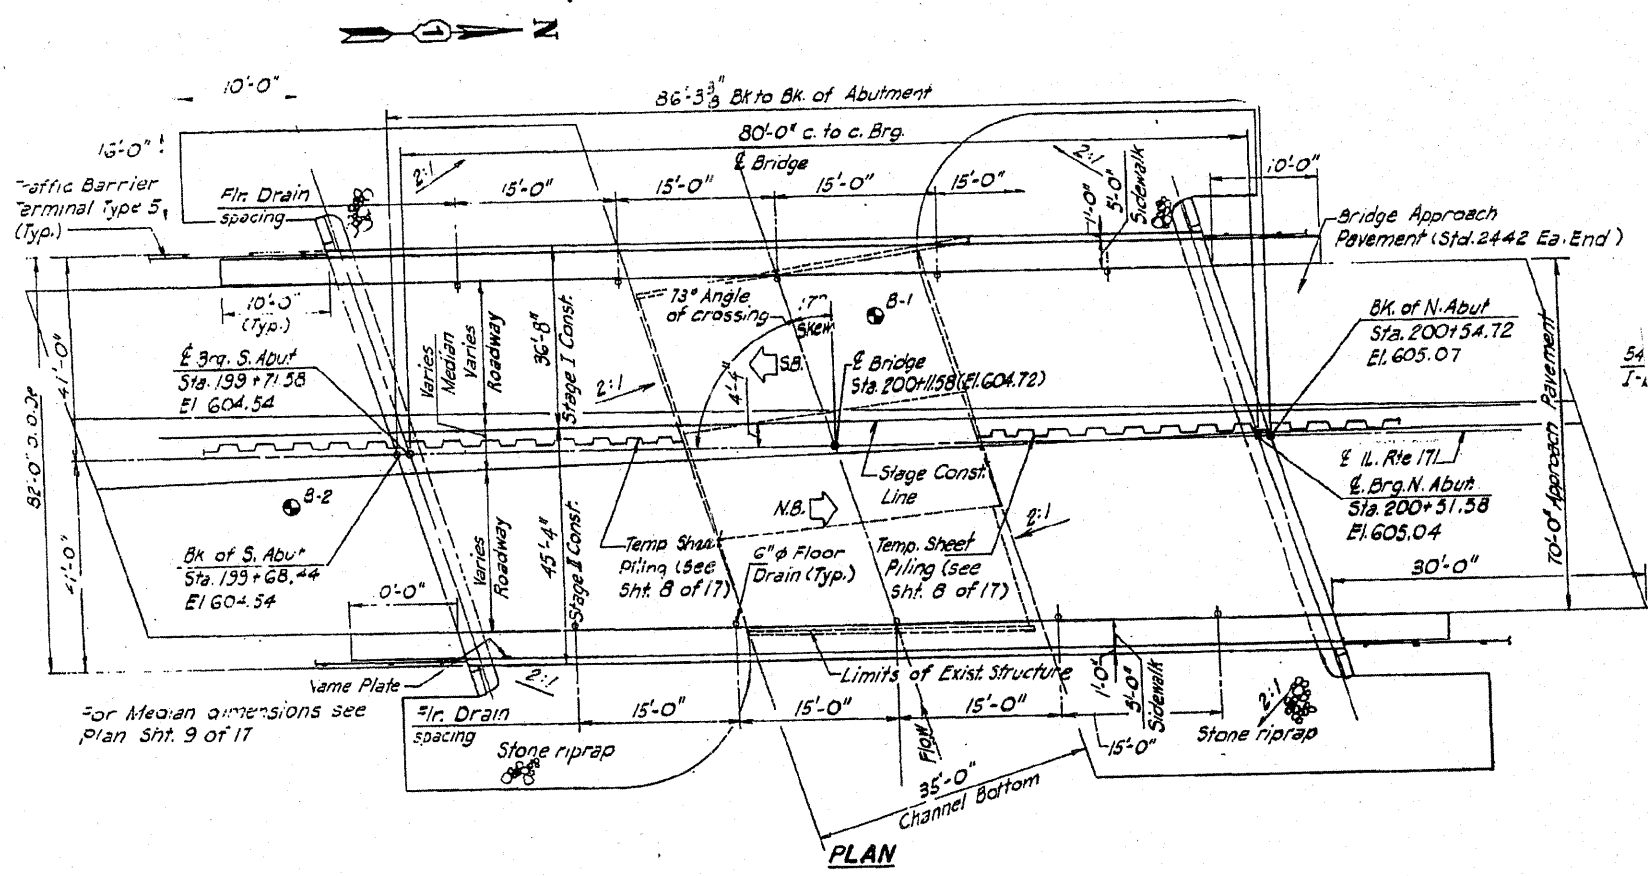 N
1
10'-0"
86'-3 3/8" Bk to Bk. of Abutment
80'-0" c. to c. Brg.
℄ Bridge
16'-0"
Traffic Barrier
Terminal Type 5,
(Typ.)
Flr. Drain
spacing
2:1
15'-0"
15'-0"
15'-0"
15'-0"
2:1
1'-0"
5'-0"
Sidewalk
10'-0"
Bridge Approach
Pavement (Std. 2442 Ea. End)
10'-0"
(Typ.)
73° Angle
of crossing
17°
Skew
B-1
Bk. of N. Abut
Sta. 200+54.72
El. 605.07
℄ Brg. S. Abut
Sta. 199+71.58
El 604.54
Varies
Median
Varies
Roadway
36'-8"
Stage I Const.
2:1
S.B.
4'-4"
℄ Bridge
Sta. 200+11.58 (El. 604.72)
54
82'-0"
41'-0"
B-2
Stage Const.
Line
℄ IL. Rte 171
℄ Brg. N. Abut.
Sta. 200+51.58
El. 605.04
70'-0" Approach Pavement
N.B.
2:1
Bk of S. Abut
Sta. 199+68.44
El 604.54
Varies
Roadway
45'-4"
Stage I Const.
Temp
Piling (See
Sht. 8 of 17)
6" ϕ Floor
Drain (Typ.)
Temp. Sheet
Piling (see
Sht. 8 of 17)
30'-0"
0'-0"
Name Plate
2:1
Limits of Exist. Structure
1'-0"
5'-0"
Sidewalk
2:1
For Median dimensions see
Plan Sht. 9 of 17
Flr. Drain
spacing
15'-0"
15'-0"
15'-0"
15'-0"
Stone riprap
Stone riprap
Flow
35'-0"
Channel Bottom
PLAN